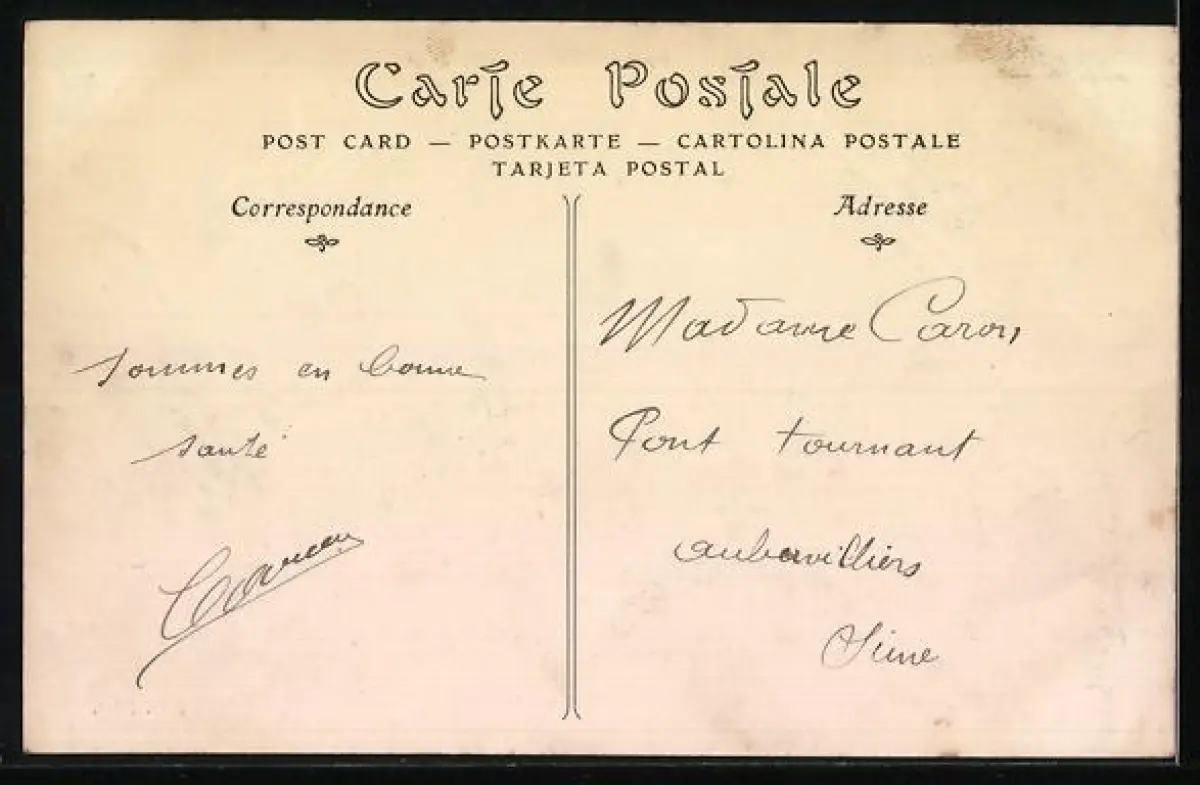 Carte Postale
POST CARD — POSTKARTE — CARTOLINA POSTALE
TARJETA POSTAL
Correspondance
Adresse
sommes en bonne
santé
Madame Caron
Pont tournant
aubervilliers
Seine